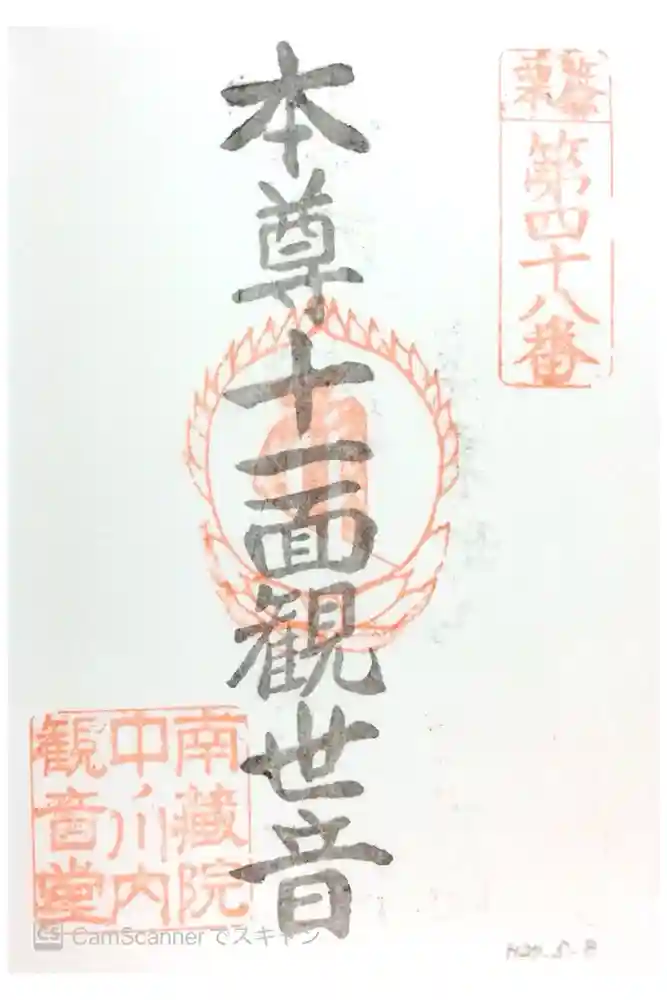 篠栗
第四十八番
本尊十一面観世音
南藏院
中ノ川内
観音堂
CS CamScanner でスキャン